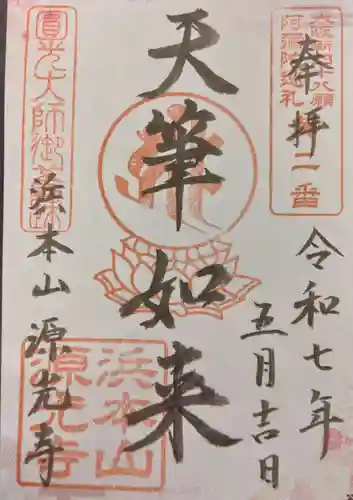 奉拝
二番
令和七年
五月吉日
天筆如来
圓光大師御
浜本山源光寺
浜本山
源光寺